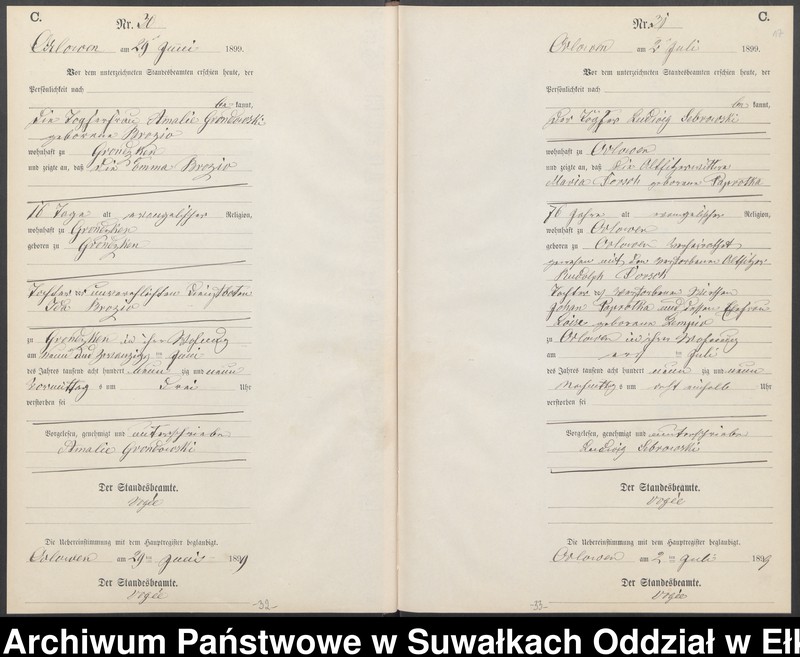 C.
Nr. 30
Orlowen am 29 Juni 1899.
Vor dem unterzeichneten Standesbeamten erschien heute, der
Persönlichkeit nach
be kannt,
die Amalie Grondowski
geborene Brozio
wohnhaft zu Grondzken
und zeigte an, daß die Emma Brozio
16 Tage alt evangelischer Religion,
wohnhaft zu Grondzken
geboren zu Grondzken
Tochter der unverehelichten Dienstboten
Ida Brozio
zu Grondzken in ihrer Wohnung
am neun und zwanzigsten Juni
des Jahres tausend acht hundert neun zig und neun
Vormittags um drei Uhr
verstorben sei
Vorgelesen, genehmigt und unterschrieben
Amalie Grondowski
Der Standesbeamte.
Vogée
Die Uebereinstimmung mit dem Hauptregister beglaubigt.
Orlowen am 29ten Juni 1899
Der Standesbeamte.
Vogée
-32-
Nr. 31
C.
Orlowen am 2 Juli 1899.
Vor dem unterzeichneten Standesbeamten erschien heute, der
Persönlichkeit nach
be kannt,
der Töpfer Ludwig
wohnhaft zu Orlowen
und zeigte an, daß die Altsitzerwittwe
Maria geborene Paprotka
76 Jahre alt evangelischer Religion,
wohnhaft zu Orlowen
geboren zu Orlowen verheirathet
gewesen mit dem verstorbenen Altsitzer
Rudolph
Tochter des verstorbenen
Johan Paprotka und dessen Ehefrau
Loise geborene
zu Orlowen in ihrer Wohnung
am ersten Juli
des Jahres tausend acht hundert neun zig und neun
Nachmittags um Uhr
verstorben sei
Vorgelesen, genehmigt und unterschrieben
Ludwig
Der Standesbeamte.
Vogée
Die Uebereinstimmung mit dem Hauptregister beglaubigt.
Orlowen am 2ten Juli 1899
Der Standesbeamte.
Vogée
-33-
Archiwum Państwowe w Suwałkach Oddział w Ełk